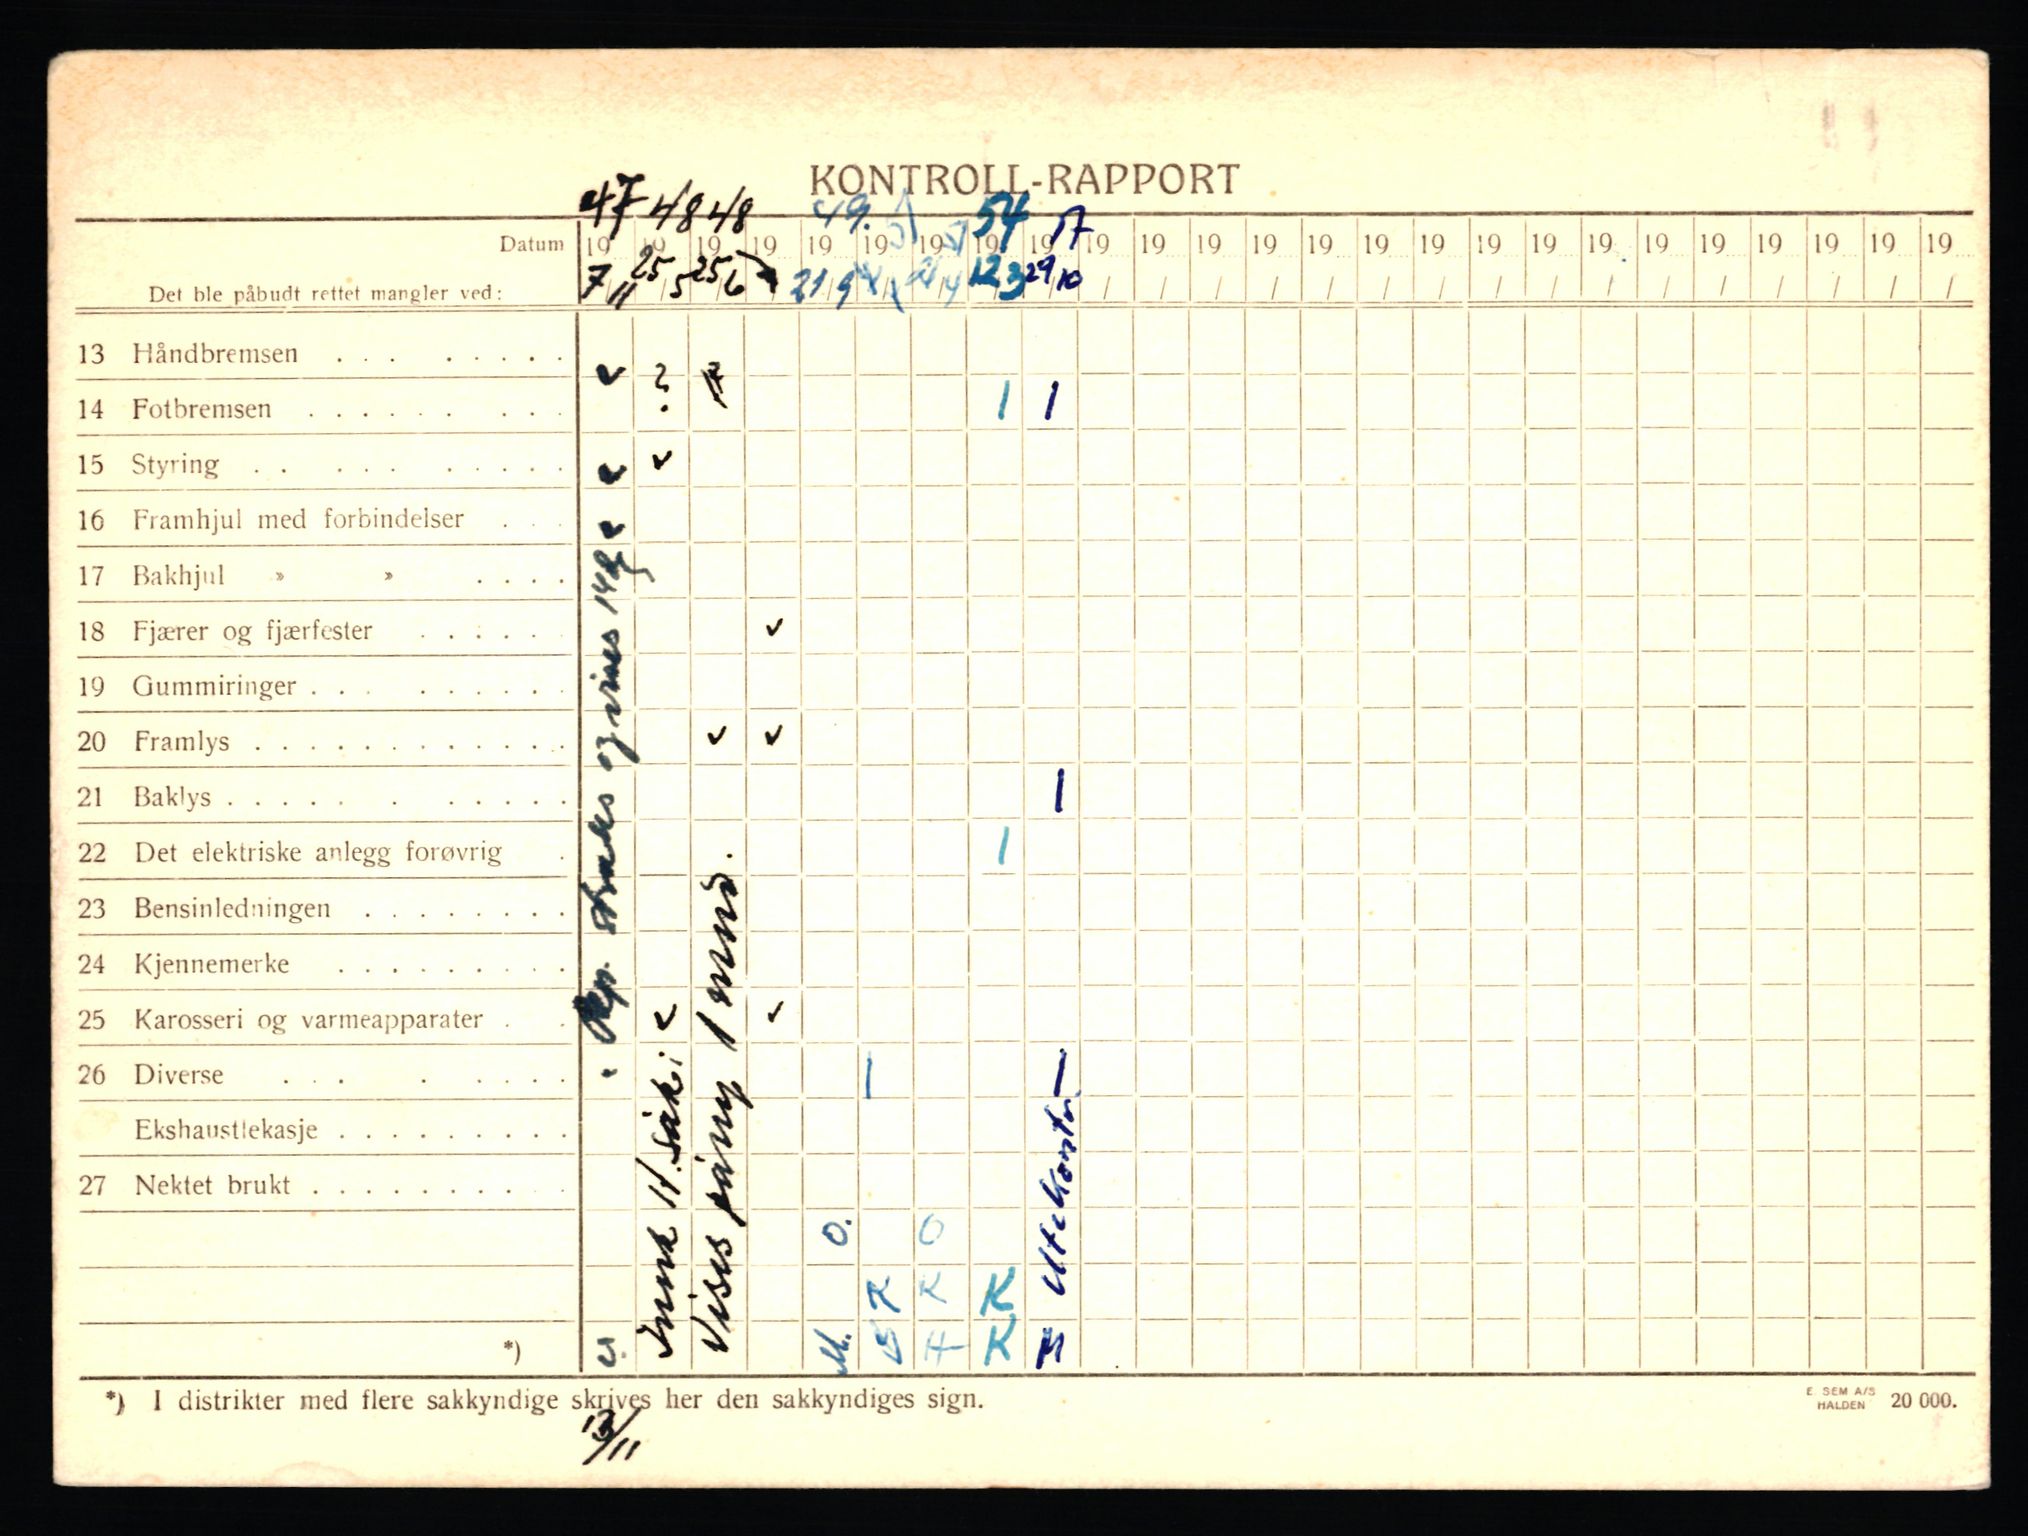 KONTROLL-RAPPORT
47 48 48 49. 54
Datum 19 19 19 19 19 19 19 19 19 19 19 19 19 19 19 19 19 19 19 19 19 19 19 19 19
Det ble påbudt rettet mangler ved: 7/11 25/5 25/6 21/9 12/3 29/10
13 Håndbremsen
14 Fotbremsen
15 Styring
16 Framhjul med forbindelser
17 Bakhjul » »
18 Fjærer og fjærfester
19 Gummiringer
20 Framlys
21 Baklys
22 Det elektriske anlegg forøvrig
23 Bensinledningen
24 Kjennemerke
25 Karosseri og varmeapparater
26 Diverse
Ekshaustlekasje
27 Nektet brukt
Rep. straks og vises 14
Vises påny 1 mnd.
Utekontr
O. O
K K K
*) M. H K
*) I distrikter med flere sakkyndige skrives her den sakkyndiges sign.
13/11
E. SEM A/S
HALDEN 20 000.